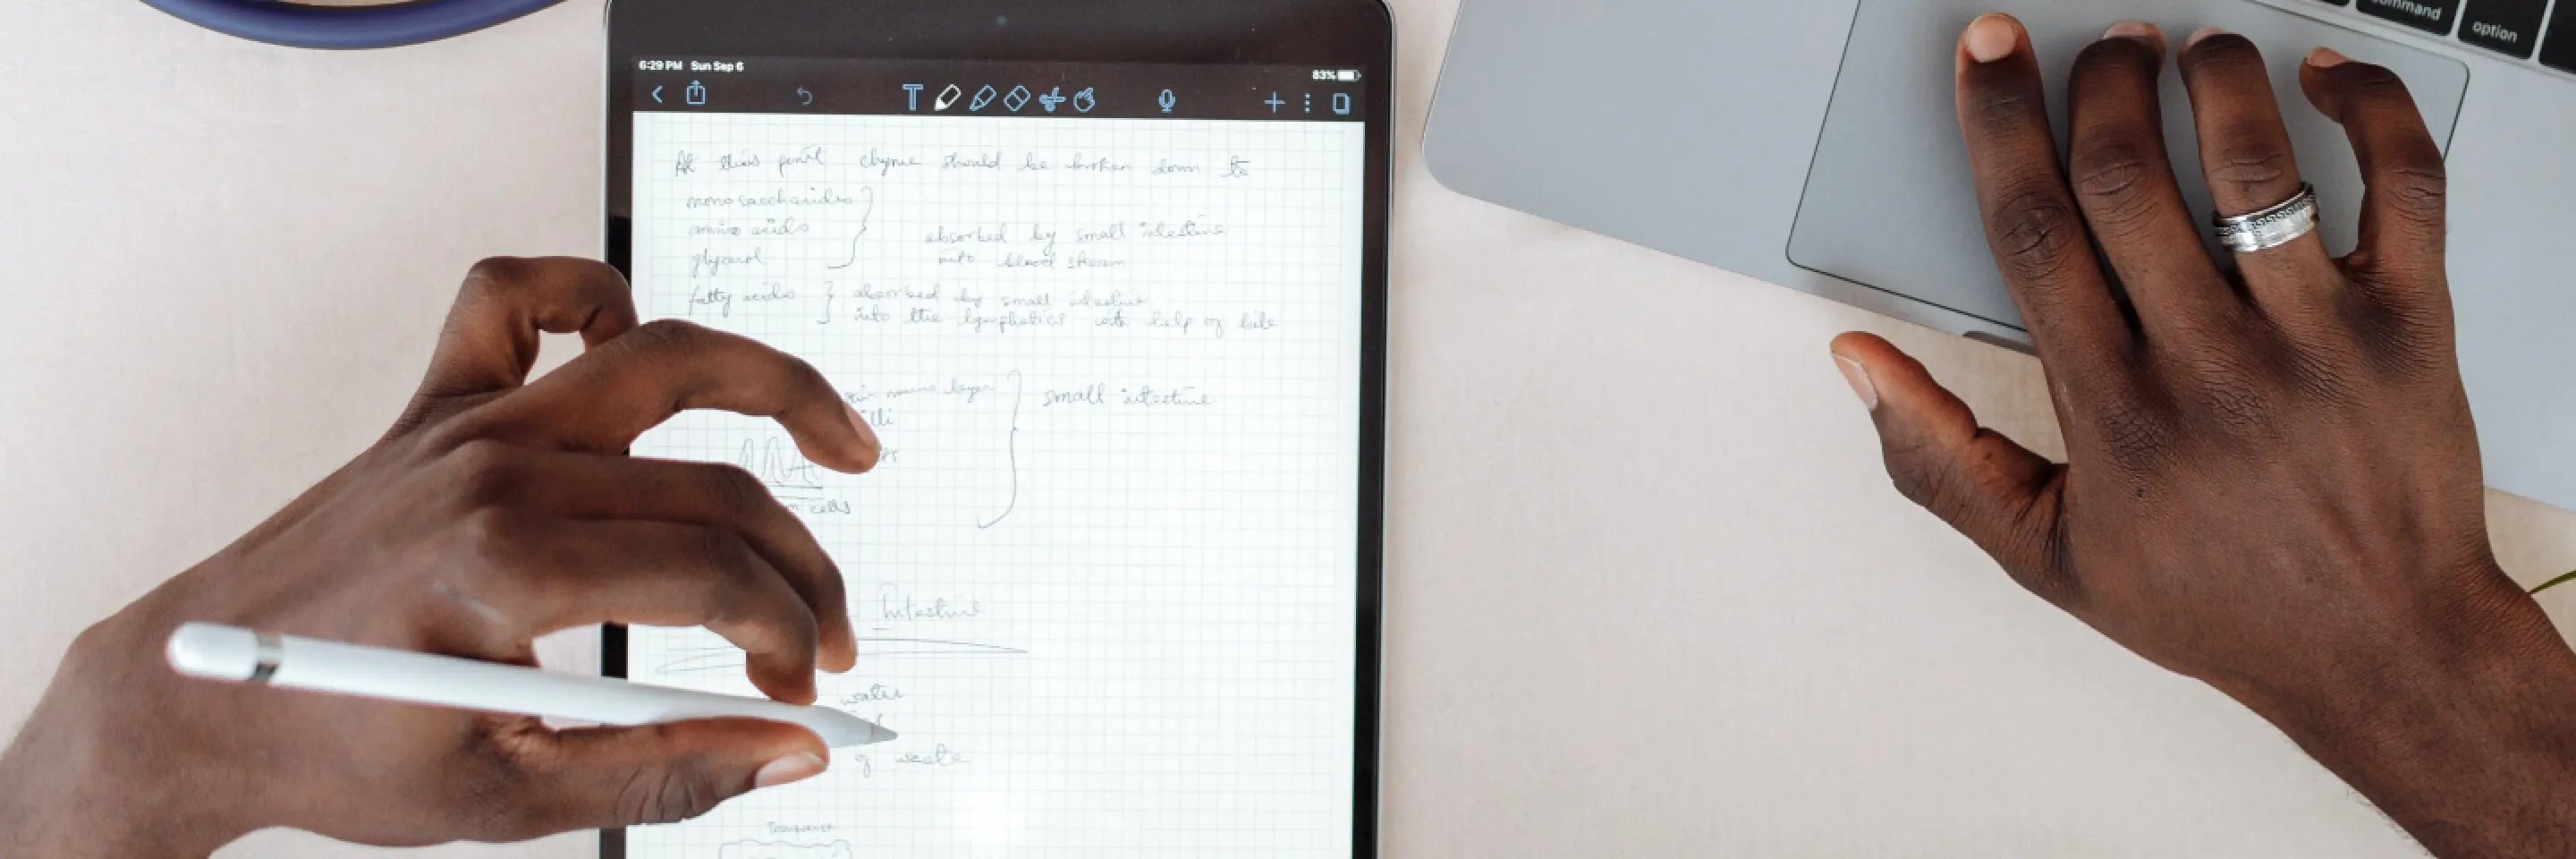 6:29 PM Sun Sep 6
83%
command
option
At this point chyme should be broken down to
monosaccharides
amino acids
glycerol
absorbed by small intestine
into blood stream
fatty acids
absorbed by small intestine
into the lymphatics with help of bile
mucus layer
small intestine
cells
Intestine
water
of waste
Transverse